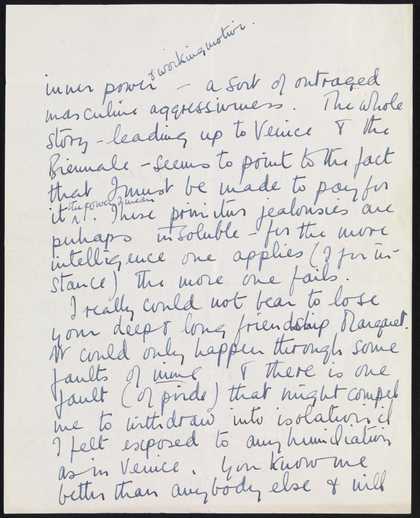 & working motive.
inner power — a sort of outraged
masculine aggressiveness. The whole
story – leading up to Venice & the
Biennale – seems to point to the fact
that I must be made to pay for
the power I mean
it. These primitive jealousies are
perhaps insoluble – for the more
intelligence one applies (I for in-
stance) the more one fails.
I really could not bear to lose
your deep & long friendship Margaret.
It could only happen through some
faults of mine & there is one
fault (of pride) that might compel
me to withdraw into isolation if
I felt exposed to any humiliation
as in Venice. You know me
better than anybody else & will